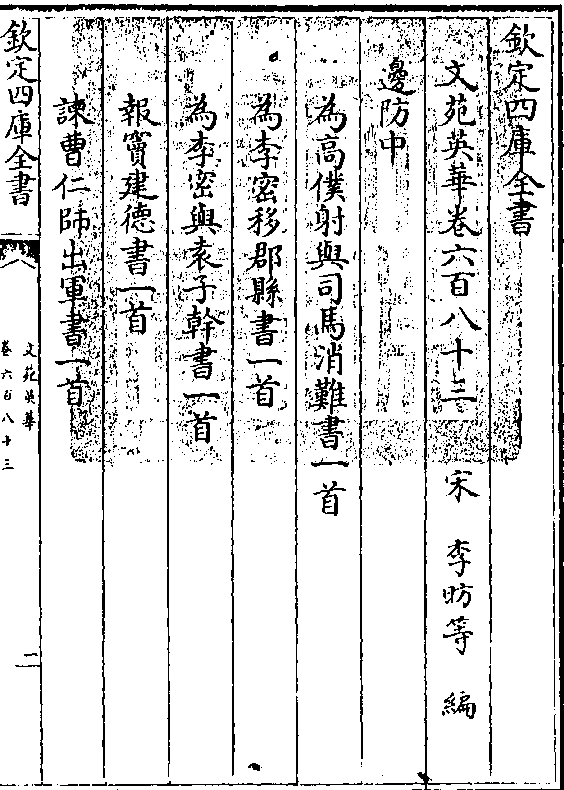 欽定四庫全書
文苑英華卷六百八十三
宋 李昉等 編
邊防中
為高僕射與司馬消難書一首
為李密移郡縣書一首
為李密與袁子幹書一首
報竇建德書一首
諫曹仁師出軍書一首
欽定四庫全書
文苑英華
卷六百八十三
二